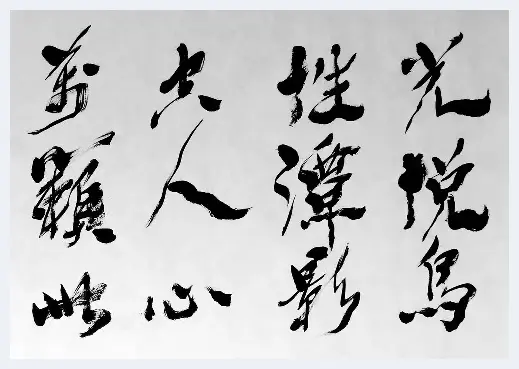 光悦鳥
性潭影
空人心
萬籟此